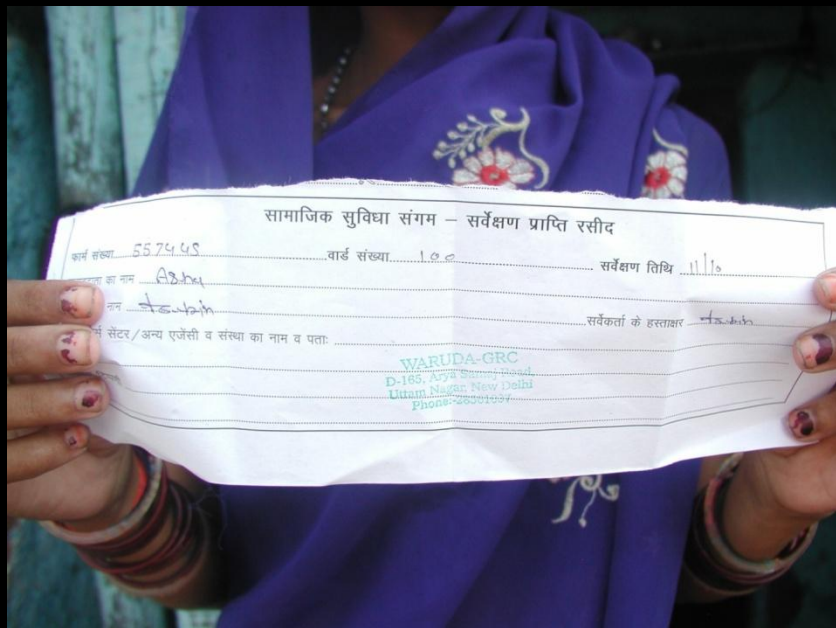 सामाजिक सुविधा संगम – सर्वेक्षण प्राप्ति रसीद
फार्म संख्या 557445 वार्ड संख्या 100 सर्वेक्षण तिथि 11/10
का नाम Asha
नाम सर्वेकर्ता के हस्ताक्षर
सेंटर/अन्य एजेंसी व संस्था का नाम व पताः
WARUDA-GRC
D-165, Arya Samaj Road,
Uttam Nagar, New Delhi
Phone:-